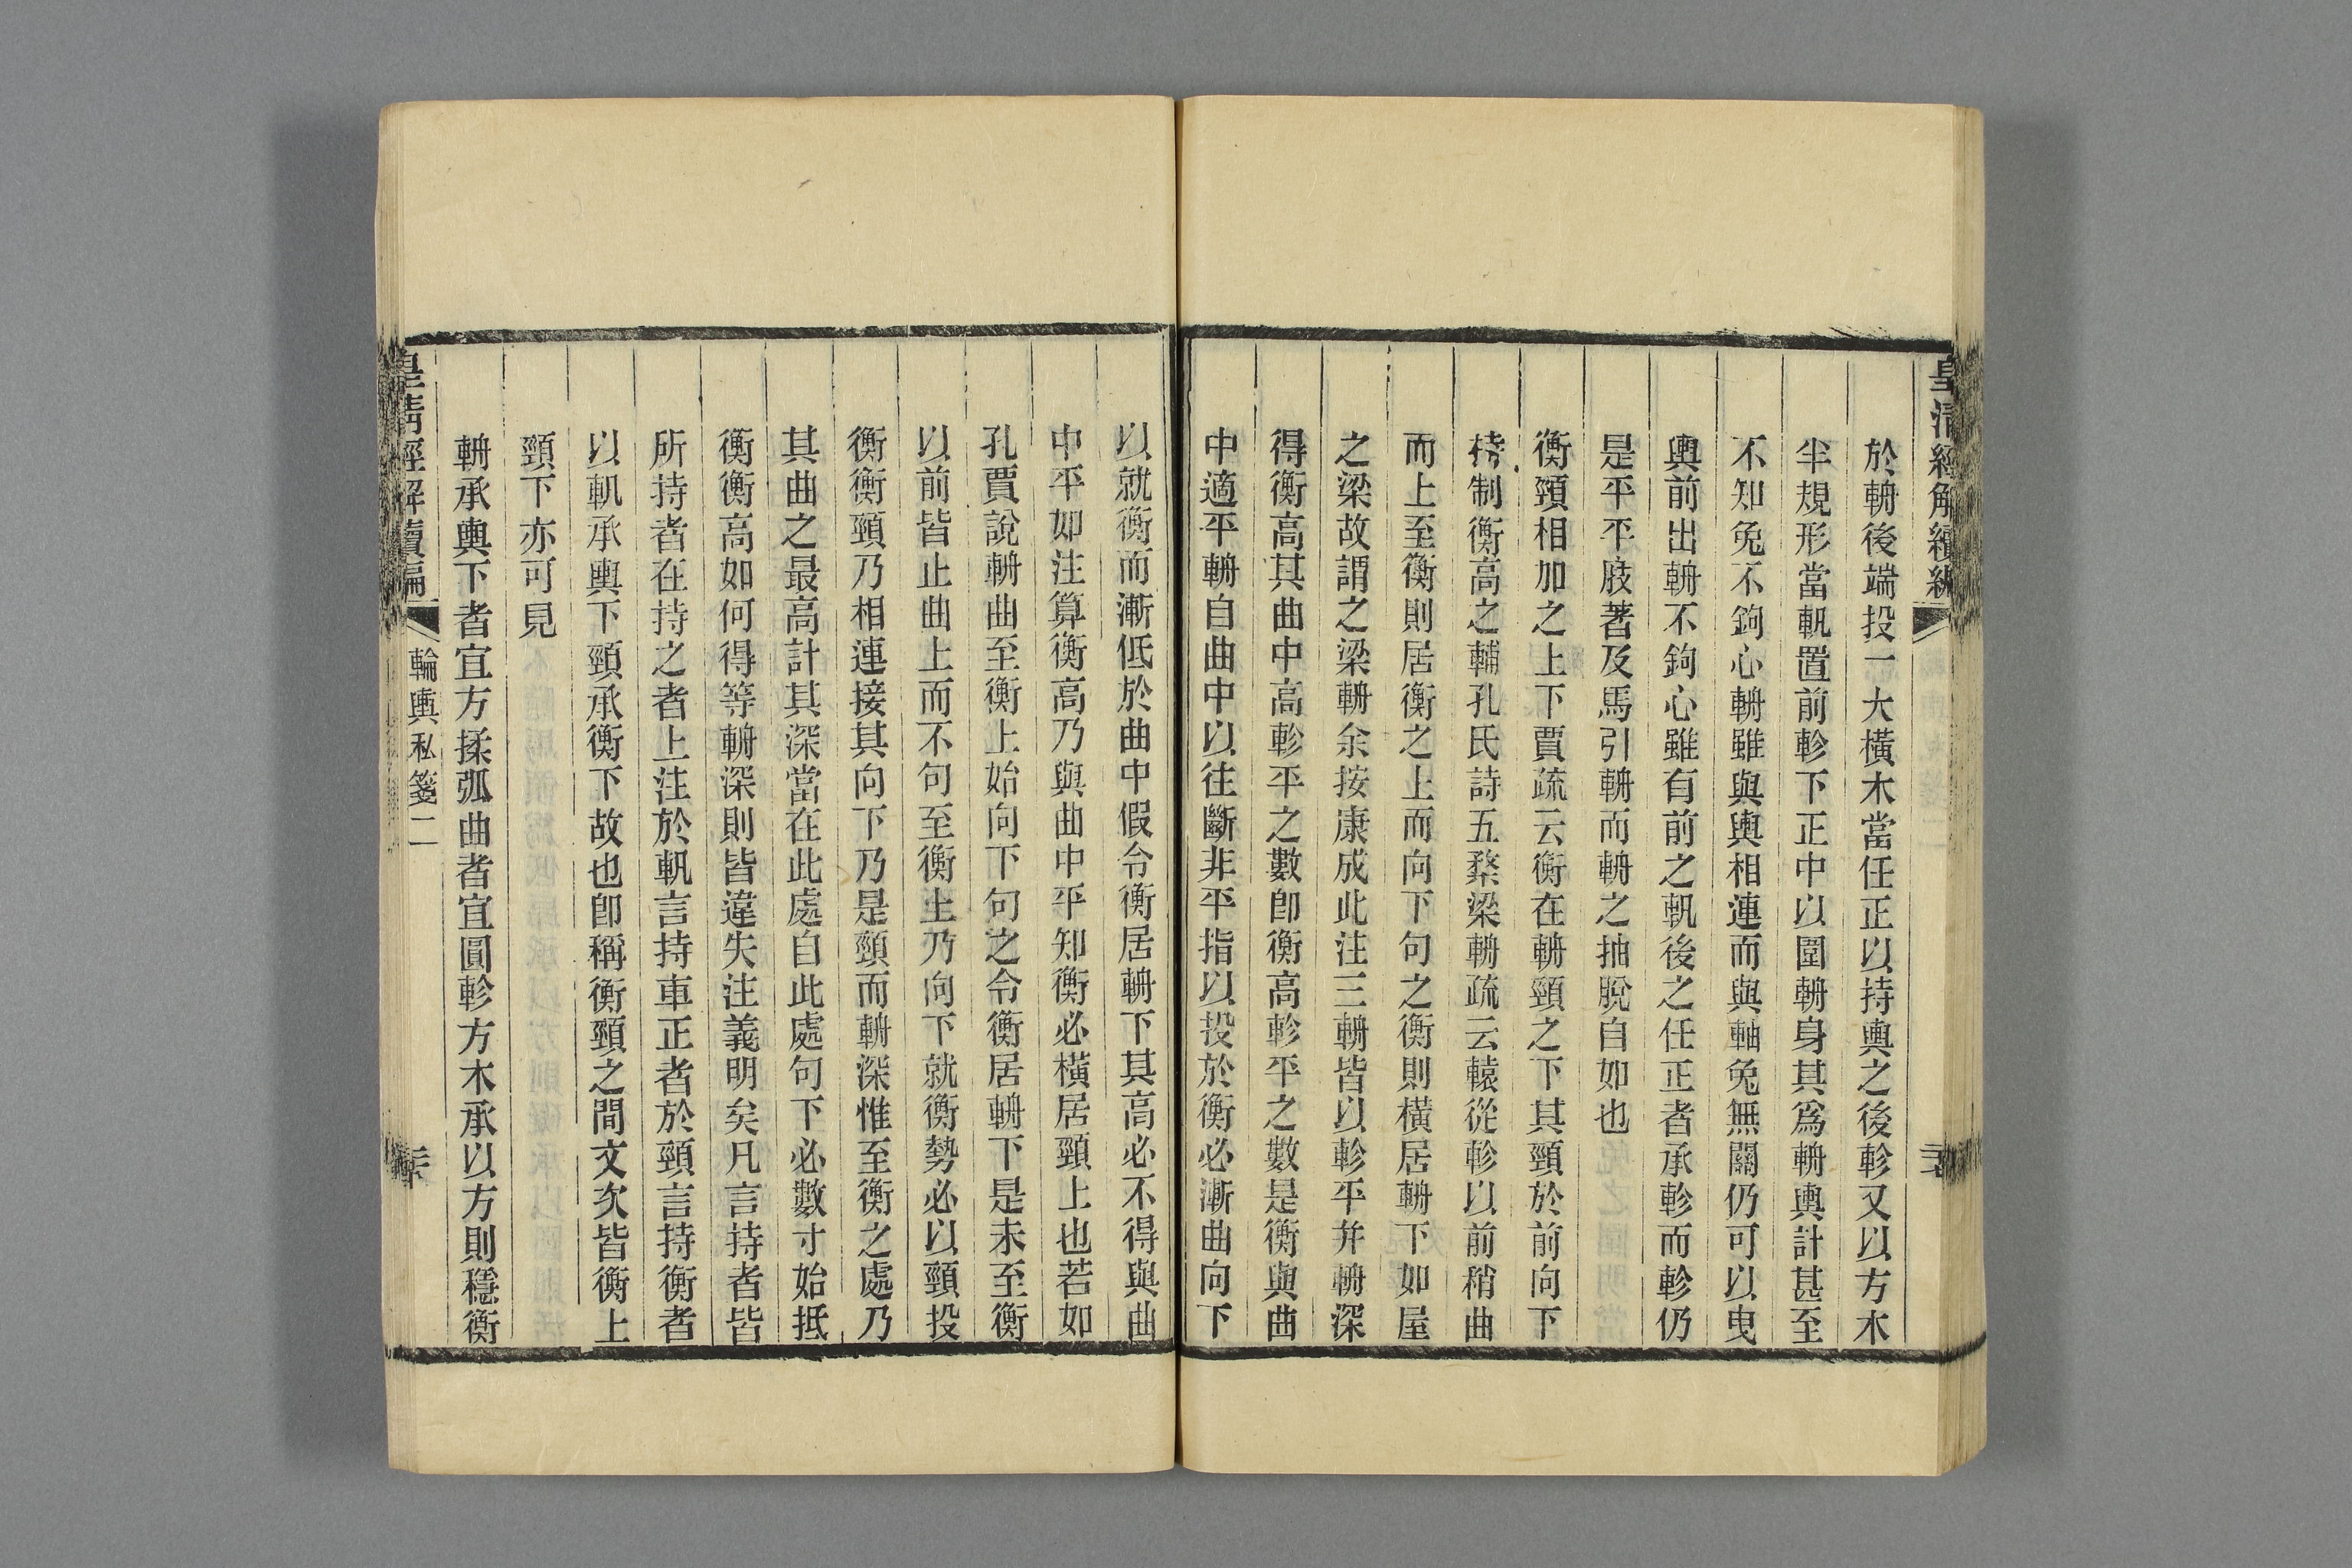 皇清經解續編
於輈後端投一大橫木當任正以持輿之後軫又以方木
半規形當軓置前軫下正中以圍輈身其爲輈輿計甚至
不知兔不鉤心輈雖與輿相連而與軸兔無關仍可以曳
輿前出輈不鉤心雖有前之軓後之任正者承軫而軫仍
是平平庋著及馬引輈而輈之抽脫自如也
衡頸相加之上下賈疏云衡在輈頸之下其頸於前向下
持制衡高之輔孔氏詩五楘梁輈疏云轅從軫以前稍曲
而上至衡則居衡之上而向下句之衡則橫居輈下如屋
之梁故謂之梁輈余按康成此注三輈皆以軫平并輈深
得衡高其曲中高軫平之數卽衡高軫平之數是衡與曲
中適平輈自曲中以往斷非平指以投於衡必漸曲向下
以就衡而漸低於曲中假令衡居輈下其高必不得與曲
中平如注算衡高乃與曲中平知衡必橫居頸上也若如
孔賈說輈曲至衡上始向下句之令衡居輈下是未至衡
以前皆止曲上而不句至衡上乃向下就衡勢必以頸投
衡衡頸乃相連接其向下乃是頸而輈深惟至衡之處乃
其曲之最高計其深當在此處自此處句下必數寸始抵
衡衡高如何得等輈深則皆違失注義明矣凡言持者皆
所持者在持之者上注於軓言持車正者於頸言持衡者
以軓承輿下頸承衡下故也卽稱衡頸之間文次皆衡上
頸下亦可見
輈承輿下者宜方揉弧曲者宜圓軫方木承以方則穩衡
皇清經解續編
輪輿私箋二